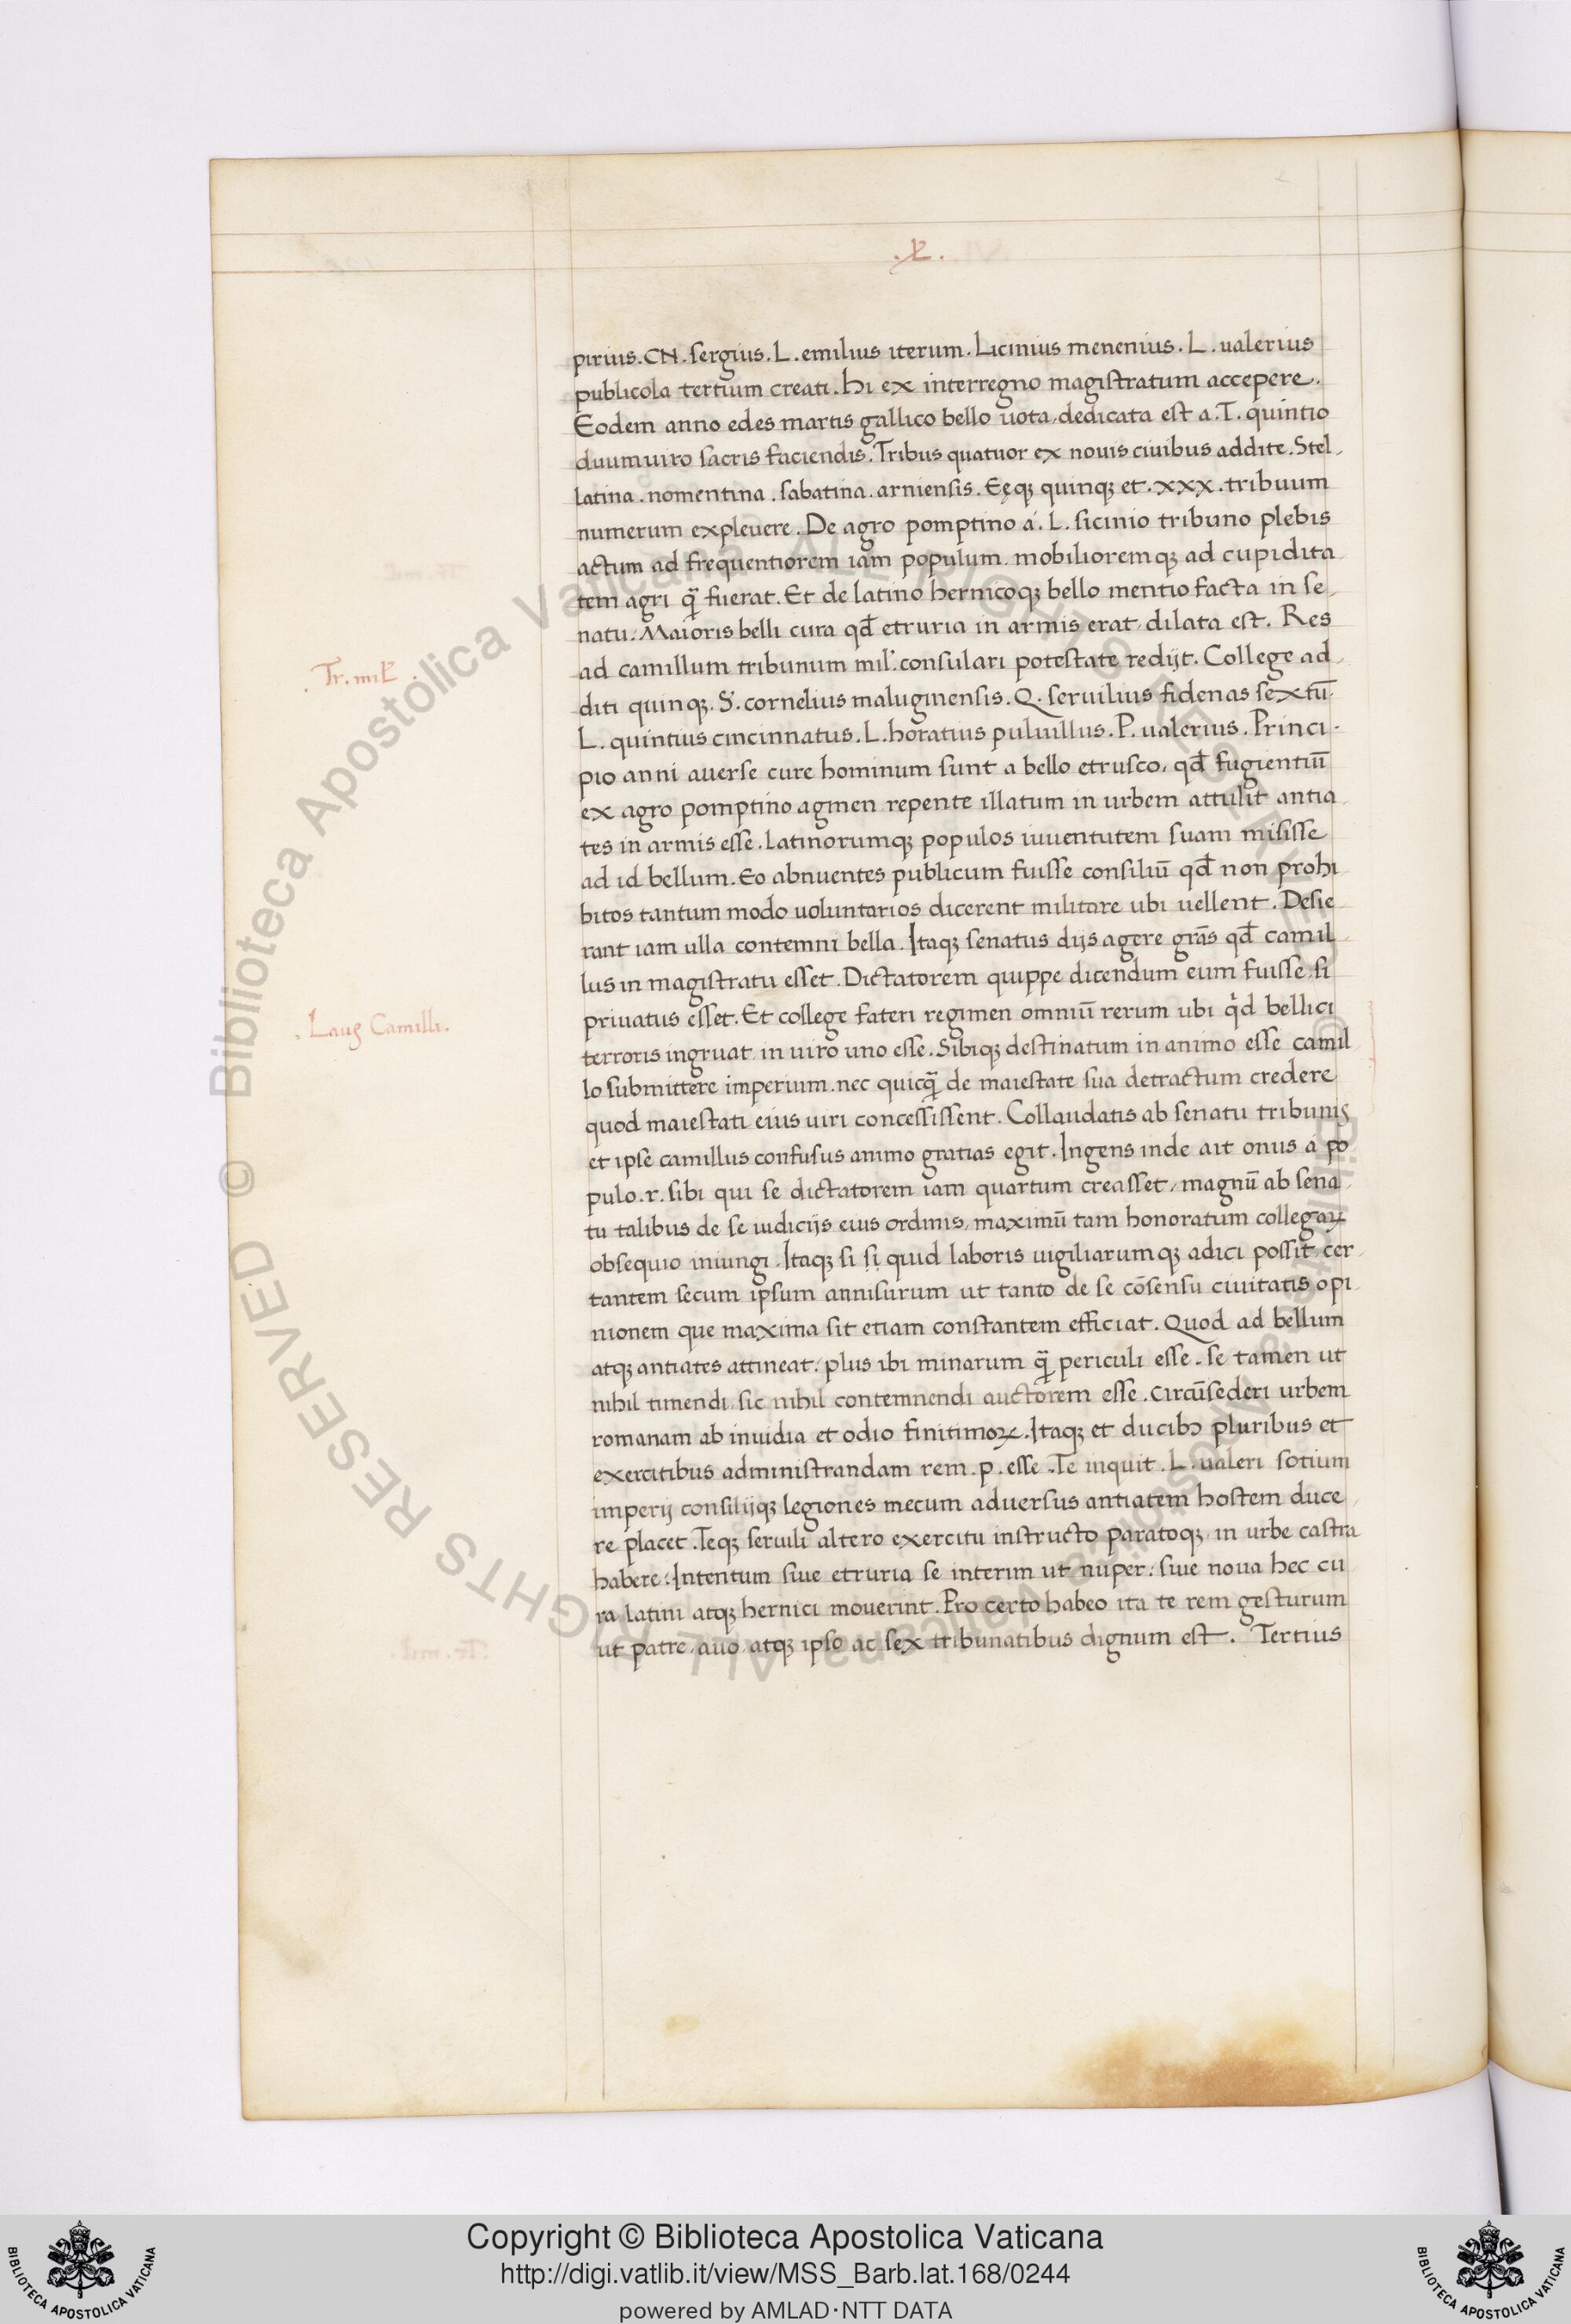 .L.
pirius. CN. sergius. L. emilius iterum. Licinius menenius. L. ualerius
publicola tertium creati. hi ex interregno magistratum accepere.
Eodem anno edes martis gallico bello uota, dedicata est a. T. quintio
duumuiro sacris faciendis. Tribus quatuor ex nouis ciuibus addite. Stel
latina. nomentina. sabatina. arniensis. Eęqꝫ quinqꝫ et. xxx. tribuum
numerum expleuere. De agro pomptino á. L. sicinio tribuno plebis
actum ad frequentiorem iam populum, mobilioremqꝫ ad cupidita
tem agri q̄ꝫ fuerat. Et de latino hernicoqꝫ bello mentio facta in se
natu. Maioris belli cura qđ etruria in armis erat, dilata est. Res
.Tr. mil̄.
ad camillum tribunum mil'. consulari potestate redijt. College ad
diti quinqꝫ. S'. cornelius maluginensis. Q. seruilius fidenas sextū.
L. quintius cincinnatus. L. horatius puluillus. P. ualerius. Princi
pio anni auerse cure hominum sunt a bello etrusco, qđ fugientiū
ex agro pomptino agmen repente illatum in urbem attulit antia
tes in armis esse. Latinorumqꝫ populos iuuentutem suam misisse
ad id bellum. Eo abnuentes publicum fuisse consiliū qđ non prohi
bitos tantum modo uoluntarios dicerent militare ubi uellent. Desie
rant iam ulla contemni bella. Itaqꝫ senatus dijs agere grās qđ camil
lus in magistratu esset. Dictatorem quippe dicendum eum fuisse, si
.Laus Camilli.
priuatus esset. Et college fateri regimen omniū rerum ubi qͥd bellici
terroris ingruat in uiro uno esse. Sibiqꝫ destinatum in animo esse camil
lo submittere imperium. nec quicq̄ꝫ de maiestate sua detractum credere
quod maiestati eius uiri concessissent. Collaudatis ab senatu tribunis
et ipse camillus confusus animo gratias egit. Ingens inde ait onus á po
pulo. r. sibi qui se dictatorem iam quartum creasset, magnū ab sena
tu talibus de se iudicijs eius ordinis, maximū tam honoratum collegaꝝ
obsequio iniungi. Itaqꝫ si si quid laboris uigiliarumqꝫ adici possit, cer
tantem secum ipsum annisurum ut tanto de se cōsensu ciuitatis opi
nionem que maxima sit etiam constantem efficiat. Quod ad bellum
atqꝫ antiates attineat, plus ibi minarum q̄ꝫ periculi esse. se tamen ut
nihil timendi, sic nihil contemnendi auctorem esse. circūsederi urbem
romanam ab inuidia et odio finitimoꝝ. Itaqꝫ et ducibꝰ pluribus et
exercitibus administrandam rem. p. esse. Te inquit. L. ualeri sotium
imperij consilijqꝫ legiones mecum aduersus antiatem hostem duce
re placet. Teqꝫ seruili altero exercitu instructo paratoqꝫ in urbe castra
habere. Intentum siue etruria se interim ut nuper, siue noua hec cu
ra latini atqꝫ hernici mouerint. Pro certo habeo ita te rem gesturum
ut patre, auo, atqꝫ ipso ac sex tribunatibus dignum est. Tertius
© Biblioteca Apostolica Vaticana ALL RIGHTS RESERVED
© Biblioteca Apostolica Vaticana ALL RIGHTS RESERVED
BIBLIOTECA APOSTOLICA VATICANA
Copyright © Biblioteca Apostolica Vaticana
http://digi.vatlib.it/view/MSS_Barb.lat.168/0244
powered by AMLAD·NTT DATA
BIBLIOTECA APOSTOLICA VATICANA